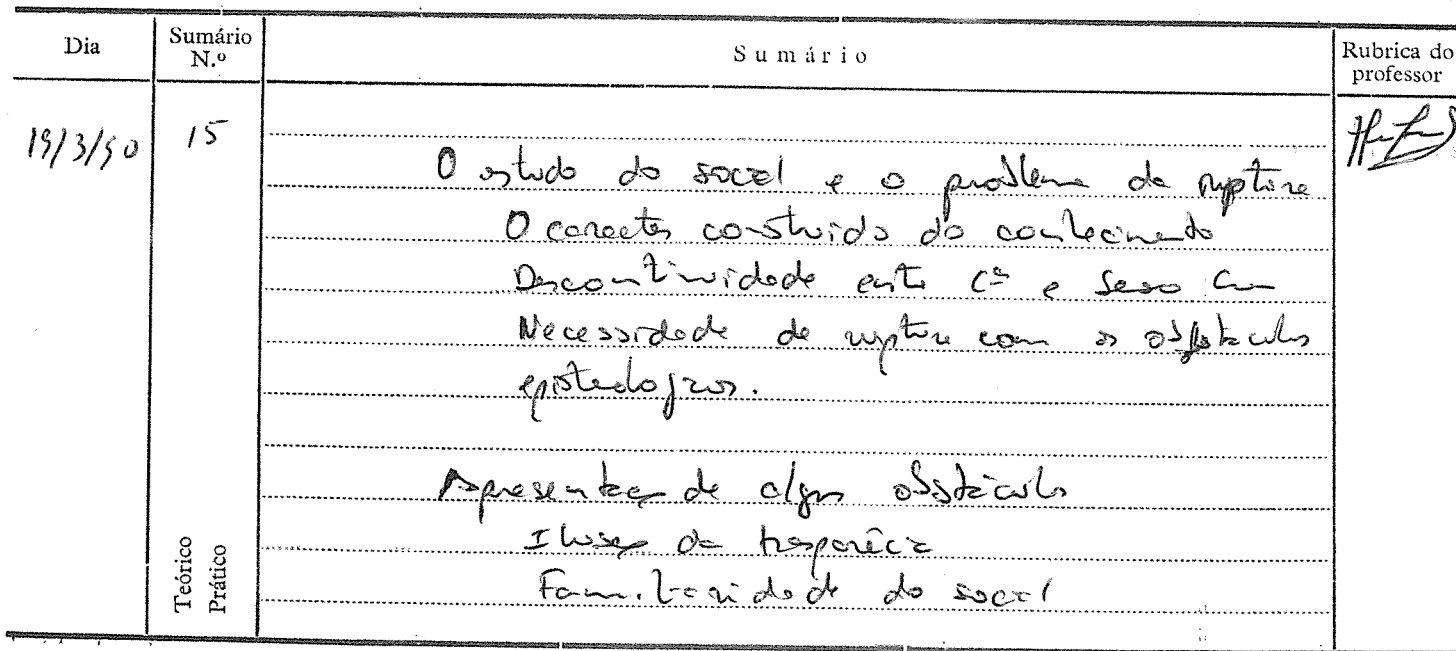 Dia
Sumário N.º
Sumário
Rubrica do professor
19/3/90
15
O estudo do social e o problema da ruptura
O caracter construido do conhecimento
Descontinuidade entre Cª e Senso Com
Necessidade de ruptura com os obstaculos
epistemologicos.
Apresentação de alguns obstáculos
Ilusão da transparência
Familiaridade do social
Teórico
Prático